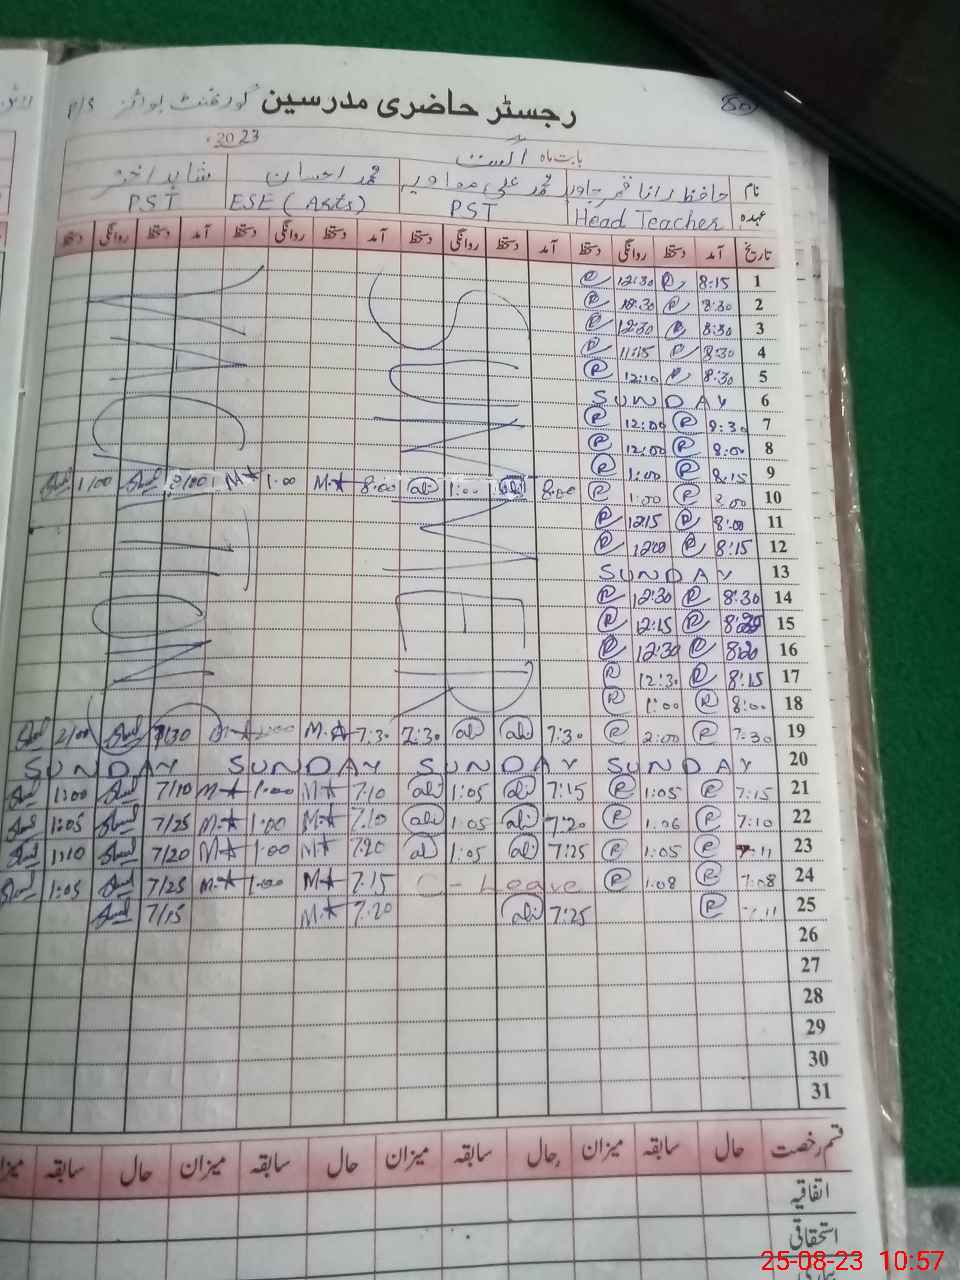 رجسٹر حاضری مدرسین گورنمنٹ بوائز P/S
بابت ماہ اگست 2023
نام حافظ رانا قمر جاوید محمد علی معاویہ محمد احسان شاہد اختر
عہدہ Head Teacher PST ESE (Arts) PST
تاریخ آمد دستخط روانگی دستخط آمد دستخط روانگی دستخط آمد دستخط روانگی دستخط آمد دستخط روانگی دستخط
1 8:15 12:30
2 8:30
3 8:30 12:30
4 8:30 11:15
5 8:30 12:10
6 SUNDAY
7 8:30 12:00
8 8:00 12:00
9 8:15 1:00
10 1:00 8:00 1:00 8:00 M.A 1.00 M.A 1/00
11 8:00 1215
12 8:15 1200
13 SUNDAY
14 8:30 12:30
15 12:15
16 8:20 12:30
17 8:15 12:30
18 8:00 1:00
19 7:30 2:00 7:30 2:30 7:30 M.A 7/30 2/00
20 SUNDAY SUNDAY SUNDAY SUNDAY
21 7:15 1:05 7:15 1:05 7:10 M.A 1:00 M.A 7/10 1:00
22 7:10 1:06 7:20 1:05 7:10 M.A 1:00 M.A 7/25 1:05
23 1:05 7:25 1:05 7:20 M.A 1:00 M.A 7/20 1:10
24 7:08 1:08 C-Leave 7:15 M.A 1:00 M.A 7/25 1:05
25 7:25 7:20 M.A 7/15
26
27
28
29
30
31
قسم رخصت حال سابقہ میزان حال سابقہ میزان حال سابقہ میزان حال سابقہ میزان
اتفاقیہ
استحقاقی
25-08-23 10:57